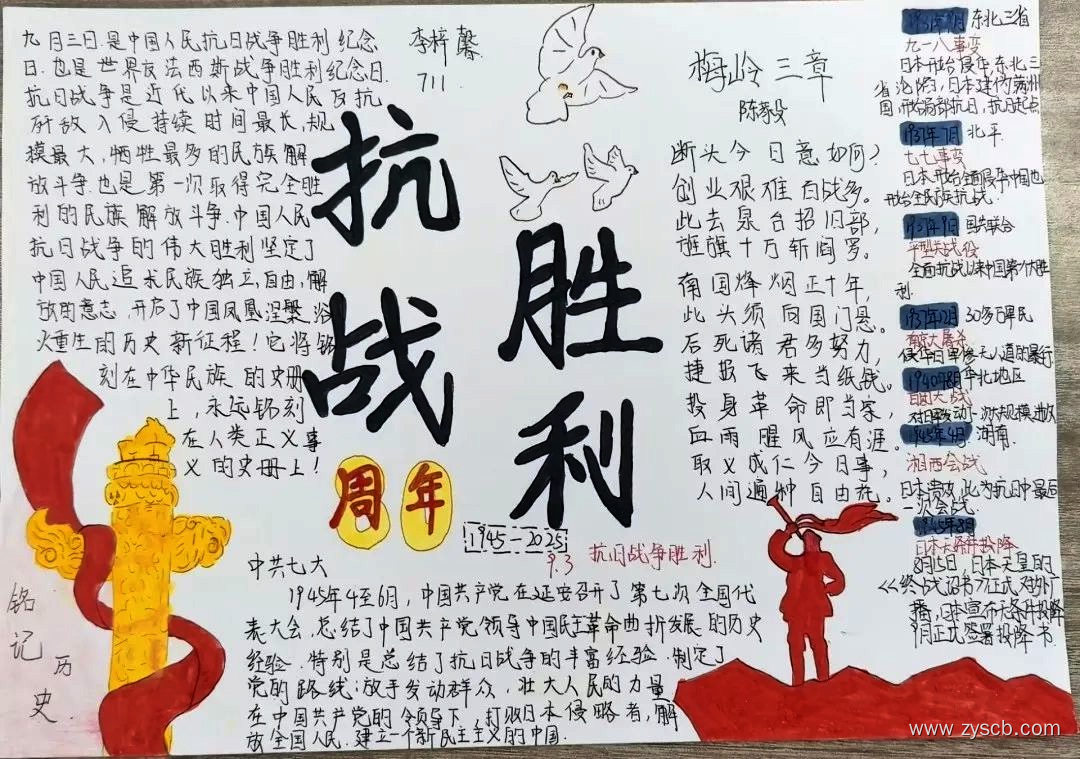 九月三日.是中国人民抗日战争胜利纪念
日.也是世界反法西斯战争胜利纪念日.
抗日战争是近代以来中国人民反抗
敌入侵持续时间最长,规
模最大,牺牲最多的民族解
放斗争.也是第一次取得完全胜
利的民族解放斗争.中国人民
抗日战争的伟大胜利坚定了
中国人民追求民族独立,自由,解
放的意志.开启了中国凤凰涅槃、浴
火重生的历史新征程!它将铭
刻在中华民族的史册
上,永远铭刻
在人类正义事
义的史册上!
李梓馨
711
抗战
胜利
周年
1945-2025
9.3 抗日战争胜利.
梅岭三章
陈毅
断头今日意如何?
创业艰难百战多。
此去泉台招旧部,
旌旗十万斩阎罗。
南国烽烟正十年,
此头须向国门悬。
后死诸君多努力,
捷报飞来当纸钱。
投身革命即为家,
血雨腥风应有涯。
取义成仁今日事,
人间遍种自由花。
1931年9月 东北三省
九一八事变
日本开始侵华,东北三
省沦陷,日本建伪满州
国,开始局部抗日,抗日起点
1937年7月 北平
七七事变
日本开始全面侵华中国也
开始全民族抗战.
1937年9月 国共联合
平型关战役
全面抗战以来中国第一次胜
利
1937年12月 30多万军民
南京大屠杀
侵华日军惨无人道的暴行
1940年8月华北地区
百团大战
对日军发动一次大规模进攻
1945年4月 湖南
湘西会战
日本溃败,此为抗日中最后
一次会战.
1945年8月
日本无条件投降
8月15日,日本天皇的
<<终战诏书>>正式对外广
播,日本宣布无条件投降
9月正式签署投降书.
中共七大
1945年4至6月,中国共产党在延安召开了第七次全国代
表大会.总结了中国共产党领导中国民主革命曲折发展的历史
经验.特别是总结了抗日战争的丰富经验.制定了
党的路线:放手发动群众,壮大人民的力量
在中国共产党的领导下,打败日本侵略者,解
放全国人民.建立一个新民主主义的中国.
铭记历史.
www.zyscb.com